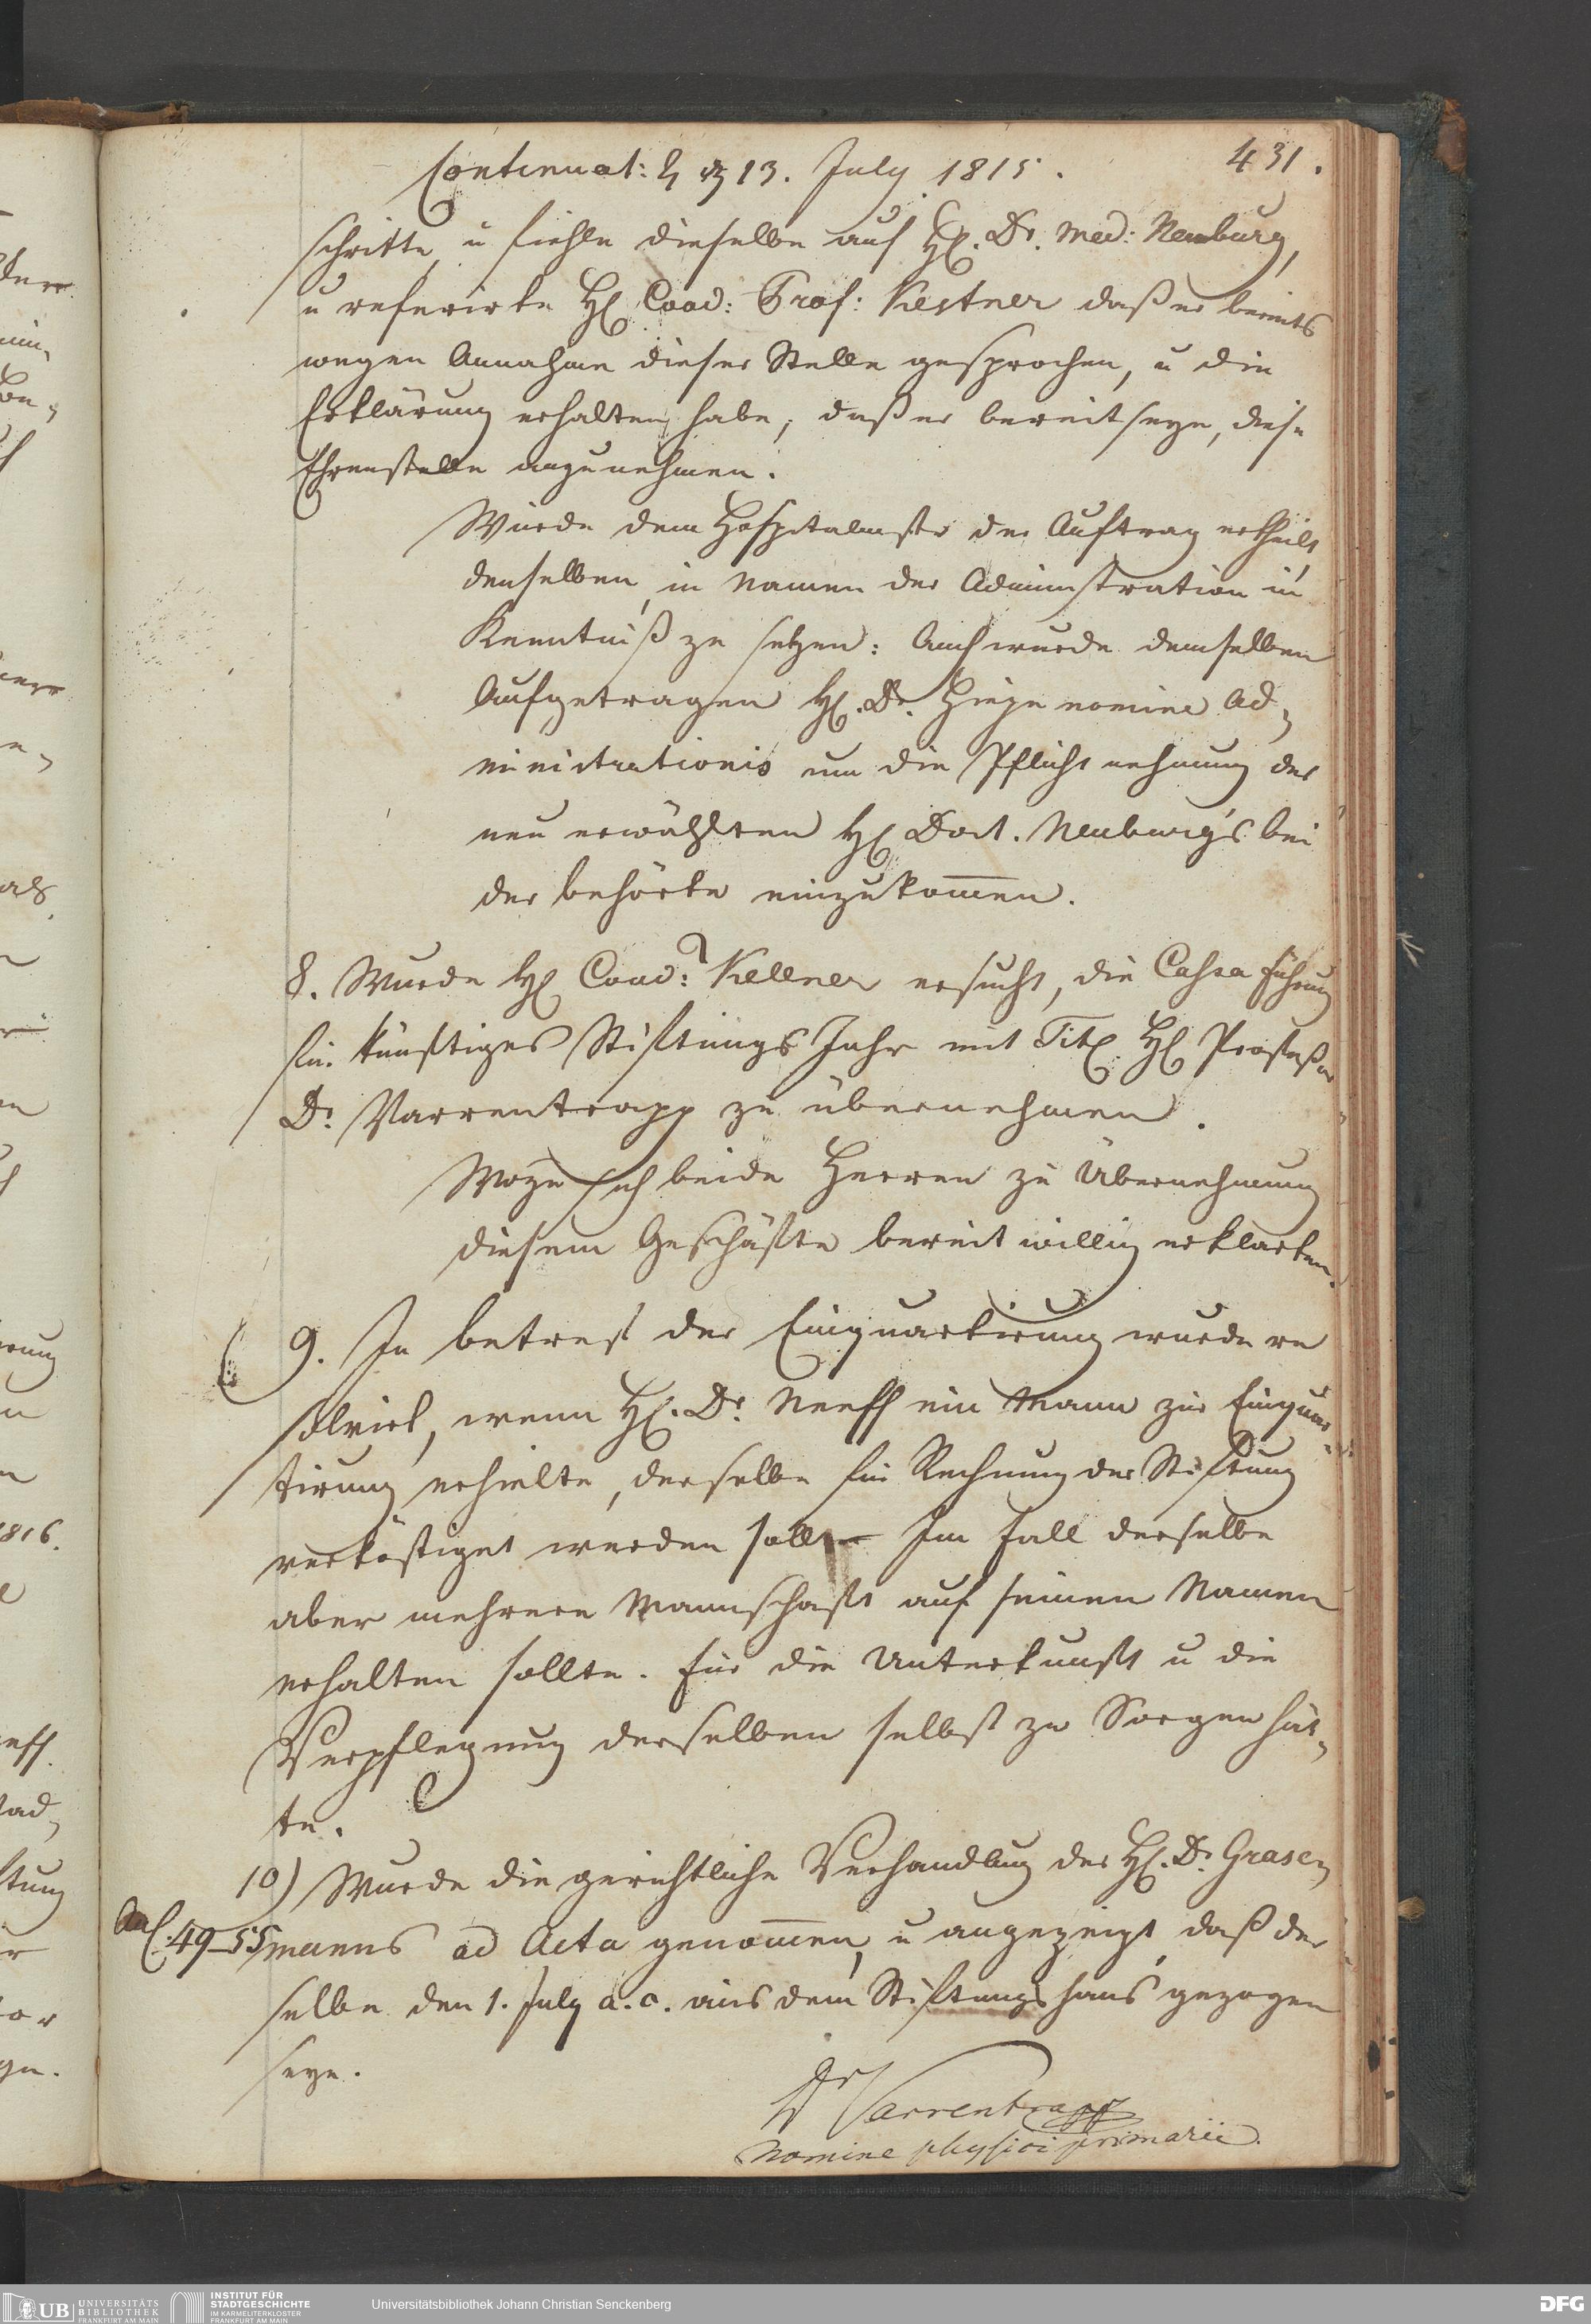 431.
Continuat: ♃ den 13. July 1815.
schritte, u fiehle dieselbe auf H. Dr. Med: Neuburg,
u referirte H Coad: Prof: Kestner daß er bereits
wegen Annahme dieser Stelle gesprochen, u die
Erklärung erhalten habe, daß er bereit seye, diese
Ehrenstelle anzunehmen.
Wurde dem Hospitalmstr der Auftrag ertheilt,
denselben, in Namen der Administration in
Kenntniß zu setzen: Auch wurde demselben
Aufgetragen H. Dr. nomine Ad,
ministrationis um die Pflicht nehmung des
neu erwählten H Doct. Neuburg's bei
der behörte einzukom̅en.
8. Wurde H Coad: Kellner ersucht, die Cassa führung
für künftiges Stiftungs Jahr mit Tit H Profeßor
Dr. Varrentrapp zu übernehmen.
Wozu sich beide Herren zu Übernehmung
diesem Geschäfte bereit willig erklarten.
9. In betreff der Einquartirung wurde re
solvirt, wenn H. Dr. Neeff ein Mann zur Einquar
tirung erhielte, derselbe für Rechnung der Stiftung
verköstiget werden soll – Im Fall derselbe
aber mehrere Mannschaft auf seinen Namen
erhalten sollte. für die Unterkunft u die
Verpflegung derselben selbst zu Sorgen hät,
te.
10) Wurde die gerichtliche Verhandlung des H. Dr. Grasen,
Anl. 49–55
manns ad Acta genom̅en, u angezeigt, daß der
selbe den 1. July a. c. aus dem Stiftungshaus gezogen
seye.
Dr Varrentrapp
Nomine physici primarii.
UB UNIVERSITÄTS
BIBLIOTHEK
FRANKFURT AM MAIN
INSTITUT FÜR
STADTGESCHICHTE
IM KARMELITERKLOSTER
FRANKFURT AM MAIN
Universitätsbibliothek Johann Christian Senckenberg
DFG